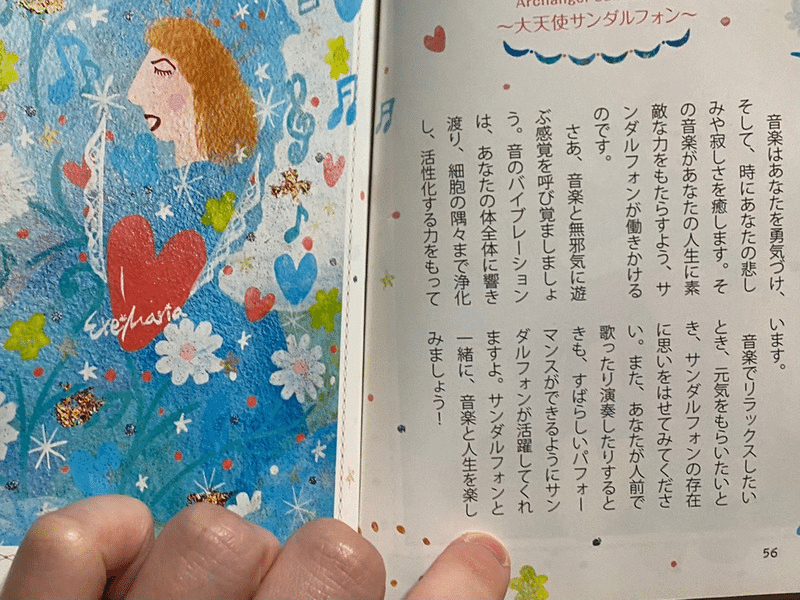 Archangel
～大天使サンダルフォン～
音楽はあなたを勇気づけ、
そして、時にあなたの悲し
みや寂しさを癒します。そ
の音楽があなたの人生に素
敵な力をもたらすよう、サ
ンダルフォンが働きかける
のです。
さあ、音楽と無邪気に遊
ぶ感覚を呼び覚ましましょ
う。音のバイブレーション
は、あなたの体全体に響き
渡り、細胞の隅々まで浄化
し、活性化する力をもって
います。
音楽でリラックスしたい
とき、元気をもらいたいと
き、サンダルフォンの存在
に思いをはせてみてくださ
い。また、あなたが人前で
歌ったり演奏したりすると
きも、すばらしいパフォー
マンスができるようにサン
ダルフォンが活躍してくれ
ますよ。サンダルフォンと
一緒に、音楽と人生を楽し
みましょう！
56